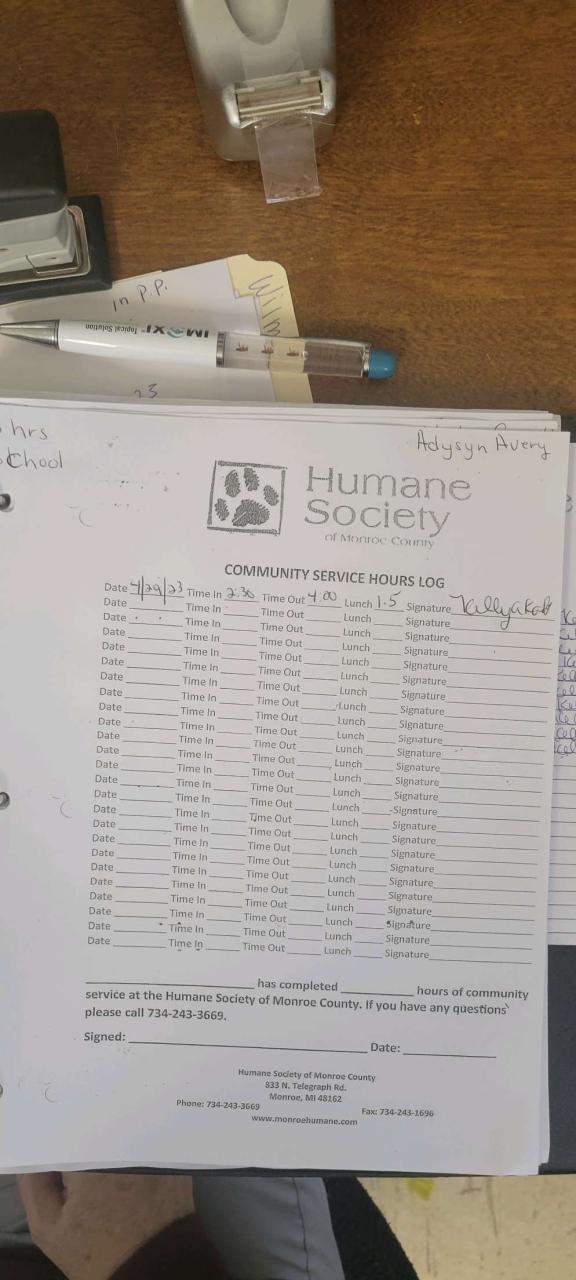 in P.P.
IMOXI Topical Solution
23
hrs
School
Adysyn Avery
Humane
Society
of Monroe County
COMMUNITY SERVICE HOURS LOG
Date 4/29/23 Time In 2:30 Time Out 4:00 Lunch 1.5 Signature
Date Time In Time Out Lunch Signature
Date Time In Time Out Lunch Signature
Date Time In Time Out Lunch Signature
Date Time In Time Out Lunch Signature
Date Time In Time Out Lunch Signature
Date Time In Time Out Lunch Signature
Date Time In Time Out Lunch Signature
Date Time In Time Out Lunch Signature
Date Time In Time Out Lunch Signature
Date Time In Time Out Lunch Signature
Date Time In Time Out Lunch Signature
Date Time In Time Out Lunch Signature
Date Time In Time Out Lunch Signature
Date Time In Time Out Lunch Signature
Date Time In Time Out Lunch Signature
Date Time In Time Out Lunch Signature
Date Time In Time Out Lunch Signature
Date Time In Time Out Lunch Signature
Date Time In Time Out Lunch Signature
Date Time In Time Out Lunch Signature
Date Time In Time Out Lunch Signature
Date Time In Time Out Lunch Signature
Date Time In Time Out Lunch Signature
Date Time In Time Out Lunch Signature
has completed hours of community
service at the Humane Society of Monroe County. If you have any questions
please call 734-243-3669.
Signed: Date:
Humane Society of Monroe County
833 N. Telegraph Rd.
Monroe, MI 48162
Phone: 734-243-3669 Fax: 734-243-1696
www.monroehumane.com